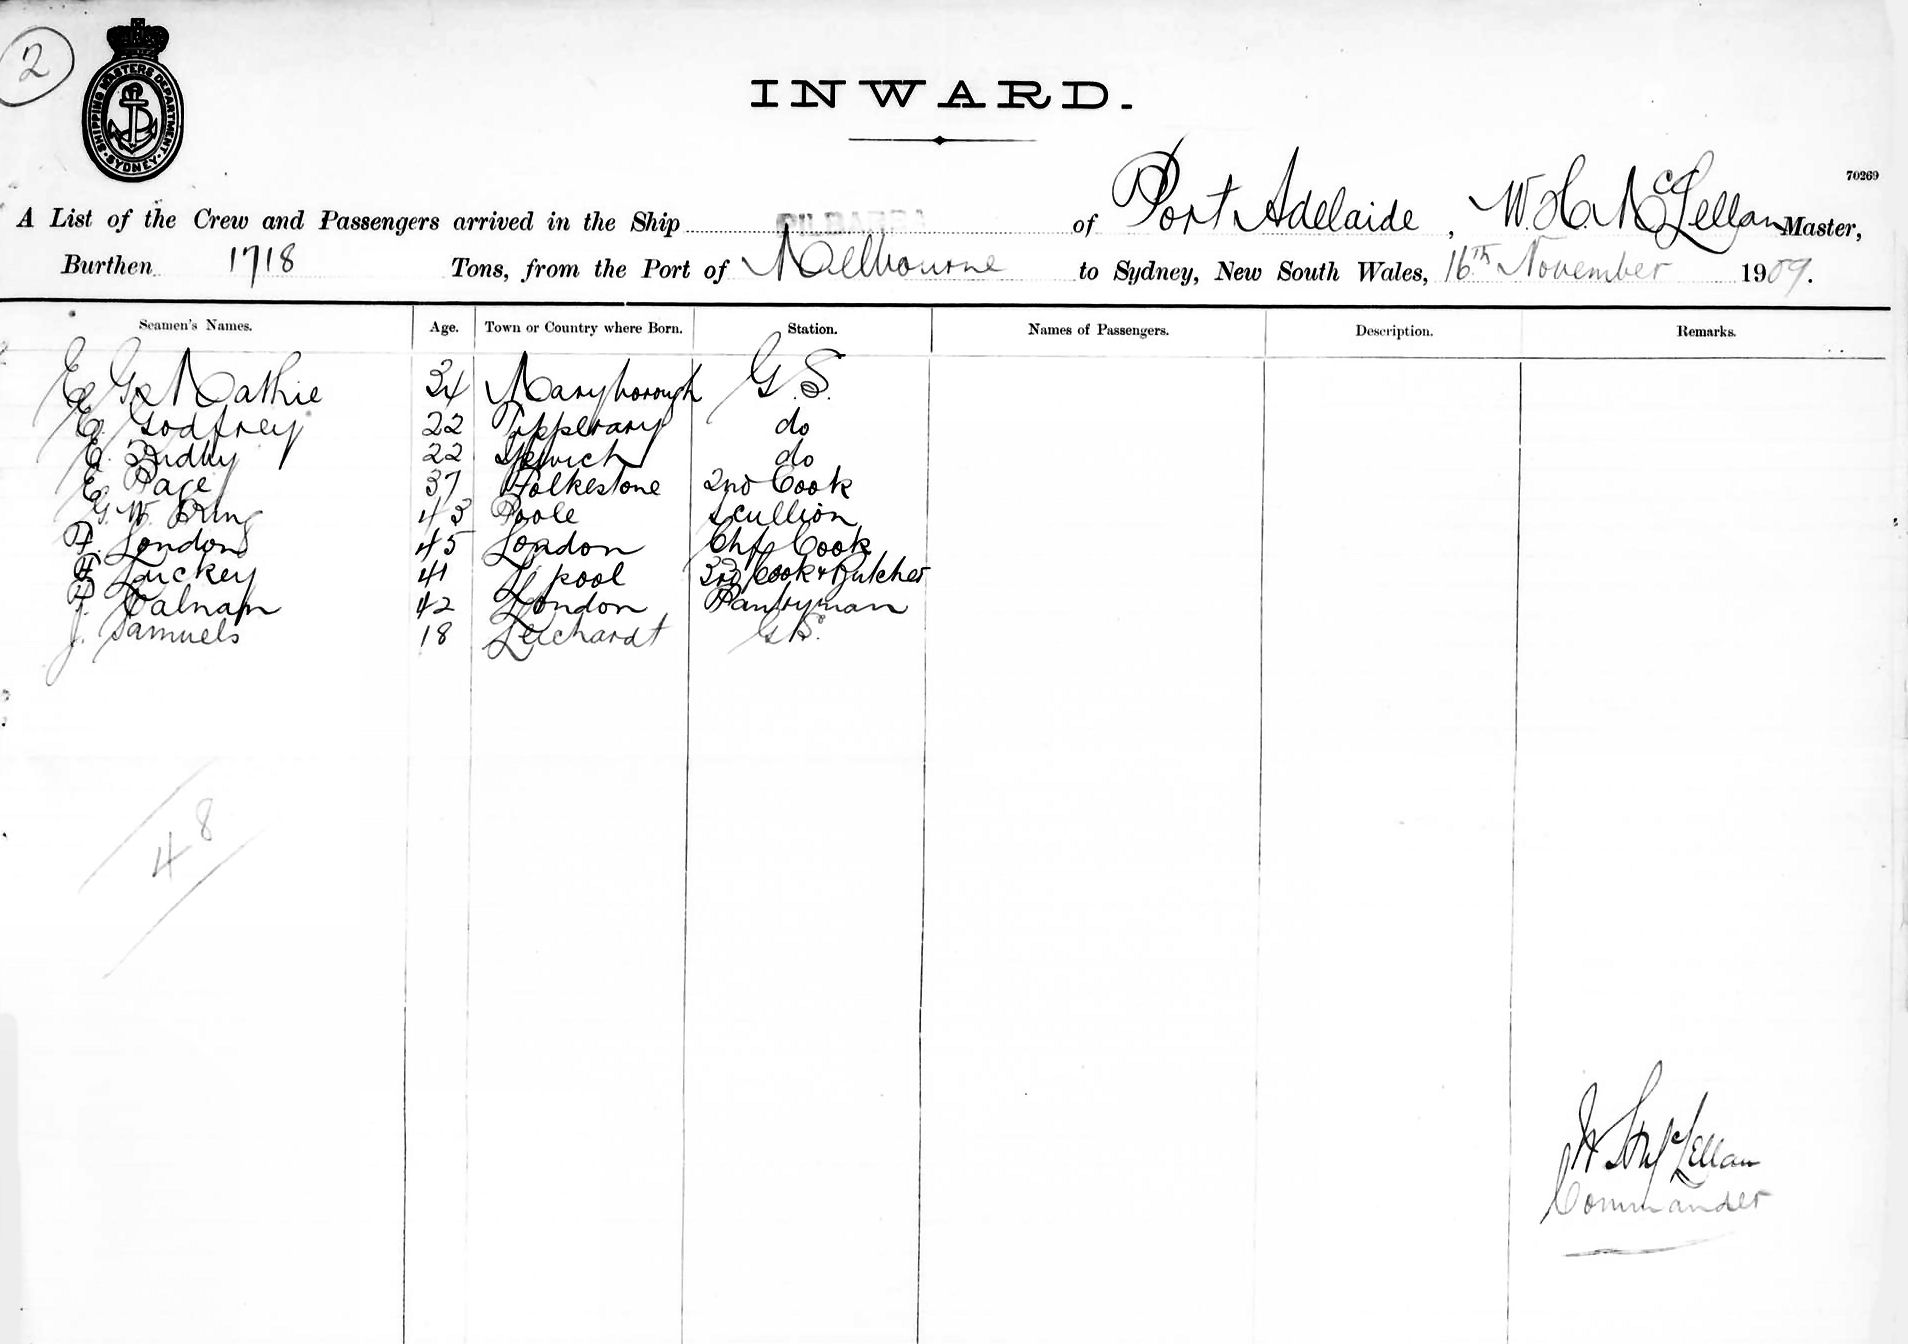 2
SHIPPING MASTERS DEPARTMENT
SYDNEY
INWARD.
70269
A List of the Crew and Passengers arrived in the Ship PILBARRA of Port Adelaide, W. H. McLellan Master,
Burthen 1718 Tons, from the Port of Melbourne to Sydney, New South Wales, 16th November 1909.
Seamen's Names. Age. Town or Country where Born. Station. Names of Passengers. Description. Remarks.
E. G. Mathie 34 Maryborough G.S.
E. Godfrey 22 Tipperary do
E. 22 Ipswich do
E. Page 37 Folkestone 2nd Cook
G. W. 43 Poole Scullion
F. London 45 London Chf Cook
F. Luckey 41 L'pool 3rd Cook & Butcher
F. Calnan 42 London Pantryman
J. Samuels 18 Leichardt G.S.
48
W H McLellan
Commander